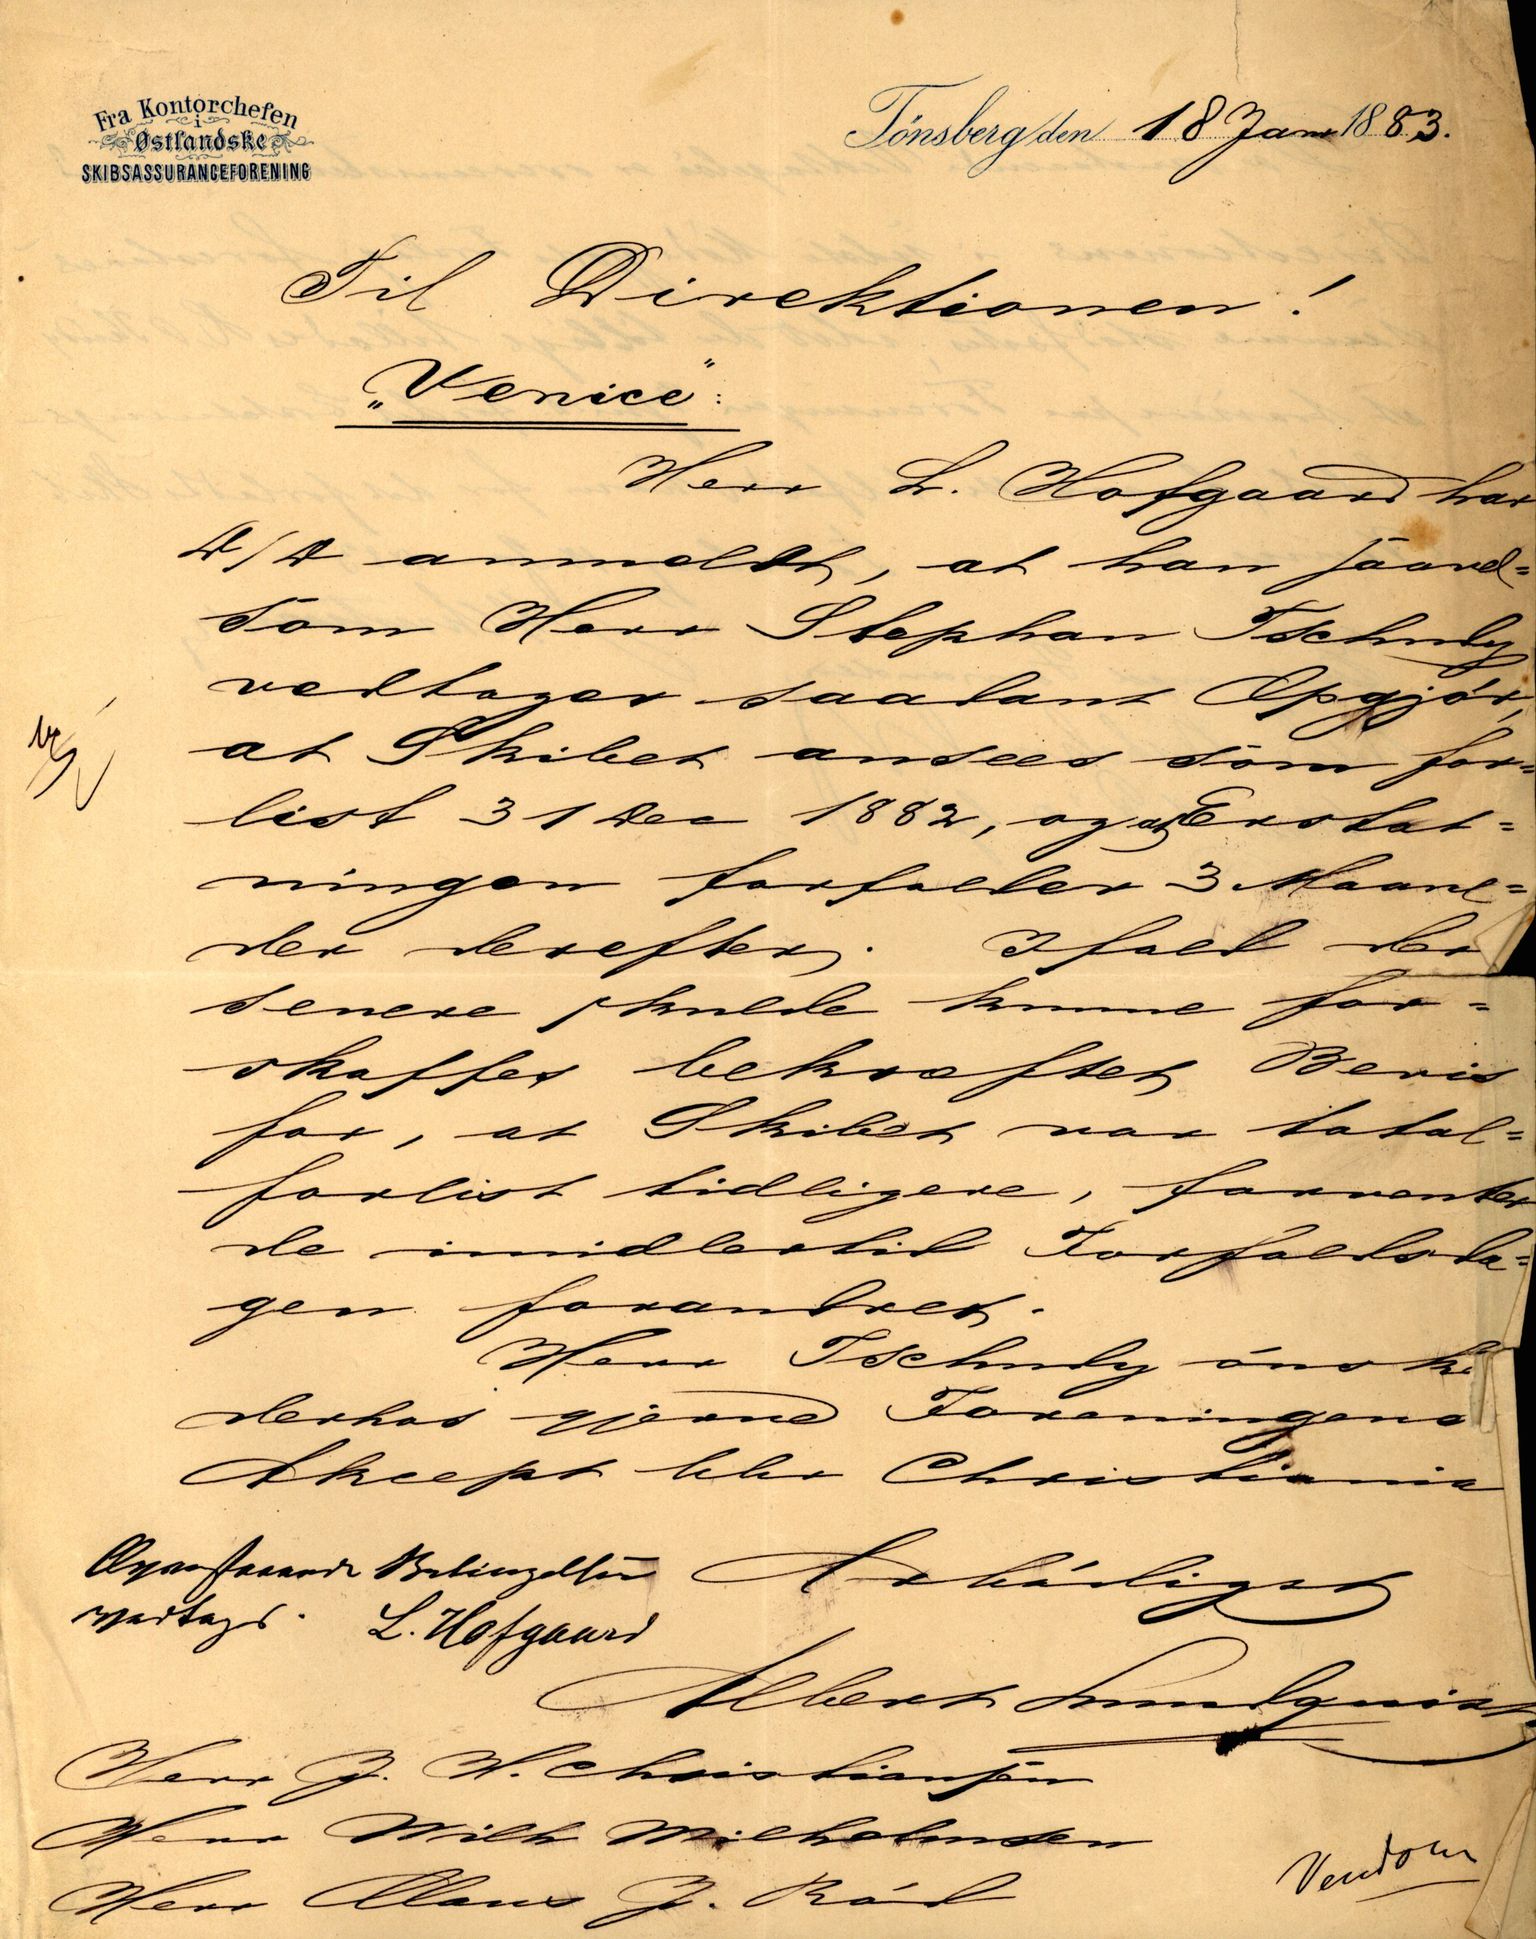 Fra Kontorchefen
i
Østlandske
SKIBSASSURANCEFORENING
Tönsberg den 18 Jan 1883.
Til Direktionen!
„Venice":
Herr L. Hofgaard har
D/D anmeldt, at han saavel=
som Herr Stephan Tschudy
vedtager saadant Opgjør,
at Skibet ansees som for=
list 31 Dec 1882, og at Erstat=
ningen forfalder 3 Maane=
der derefter. Ifald der
senere skulde kunne for=
skaffes bekræftet Bevis
for, at Skibet var total=
forlist tidligere, forventer
de imidlertid Forfaldsda=
gen forandret.
Herr Tschudy önsk
derhos gjerne Foreningens
Akcept Christiania
Ovenstaaende Betingelser
vedtages. L. Hofgaard
Ærbödigst
Albert Lundquist
Herr J. H. Christiansen
Herr Wilh Wilhelmsen
Herr Claus J. Röd